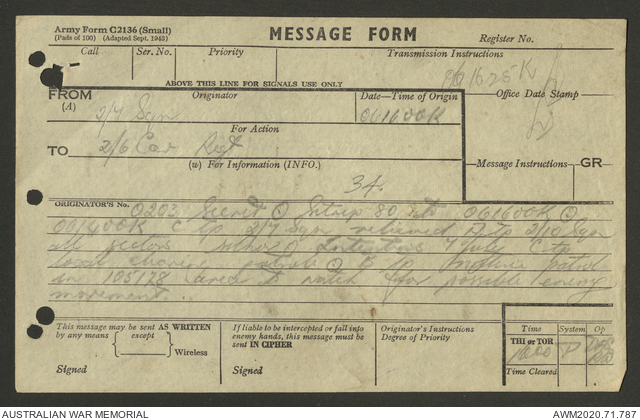 Army Form C2136 (Small)
(Pads of 100) (Adapted Sept. 1943)
MESSAGE FORM
Register No.
Call Ser. No. Priority Transmission Instructions
061625K
ABOVE THIS LINE FOR SIGNALS USE ONLY
FROM Originator Date—Time of Origin Office Date Stamp
(A) 2/7 Sqn 061600K
For Action
TO 2/6 Cav Regt
(W) For Information (INFO.) Message Instructions GR
34.
ORIGINATOR'S No. 0203 Secret Sitrep 80 061600K
061600K C Tp 2/7 Sqn relieved 2/10 Sqn
all sectors
local patrols B Tp patrol
in 105178 area to watch for possible enemy
movement
This message may be sent AS WRITTEN
by any means { except } Wireless
Signed
If liable to be intercepted or fall into
enemy hands, this message must be
sent IN CIPHER
Signed
Originator's Instructions
Degree of Priority
Time System Op
THI or TOR
1600 P
Time Cleared
AUSTRALIAN WAR MEMORIAL AWM2020.71.787